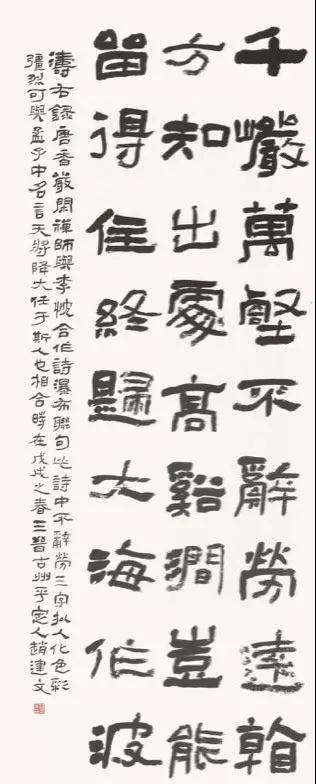 千巖萬壑不辭勞遠看
方知出處高谿澗豈能
留得住終歸大海作波
濤右錄唐香嚴閑禪師與李忱合作詩瀑布聯句此詩中不辭勞三字擬人化色彩
彊烈可與孟子中名言天將降大任于斯人也相合時在戊戌之春三晉古州平定人趙建文